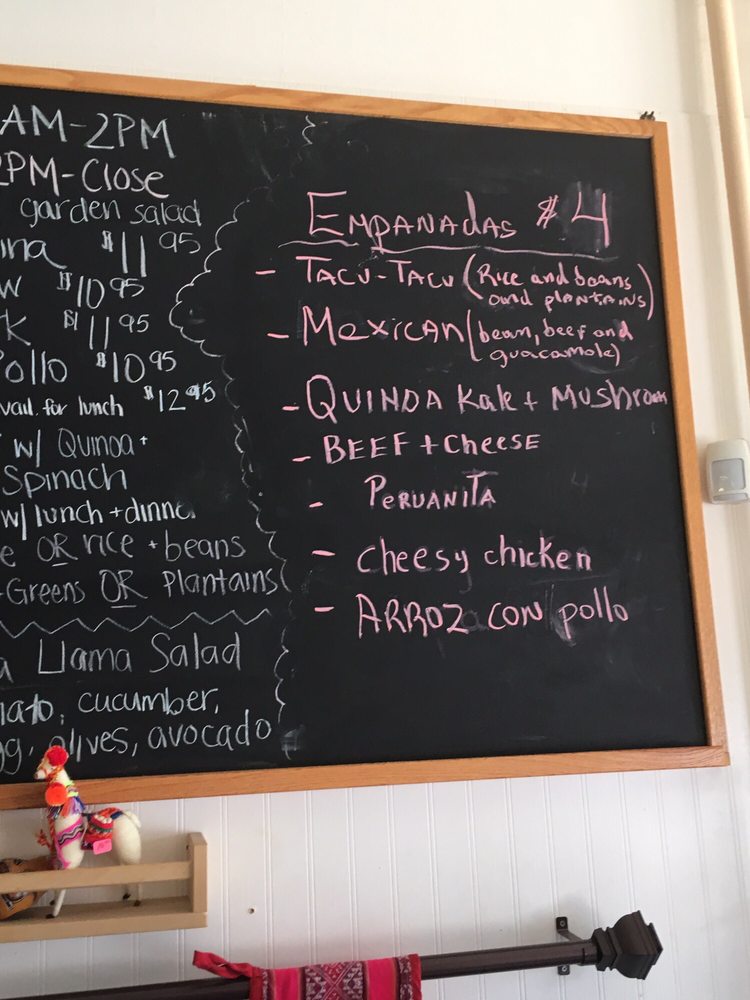 AM-2PM
2PM-Close
garden salad
$11 95
$10 95
$11 95
Pollo $10 95
avail. for lunch $12 95
w/ Quinoa +
Spinach
w/ lunch + dinner
OR rice + beans
Greens OR Plantains
Llama Salad
cucumber,
olives, avocado
EMPANADAS $4
- TACU-TACU (Rice and beans
and PLANTAINS)
- MexicAN (bean, beef and
guacamole)
- QUINOA Kale + Mushroom
- BEEF + cheese
- PERUANITA
- cheesy chicken
- ARROZ CON pollo